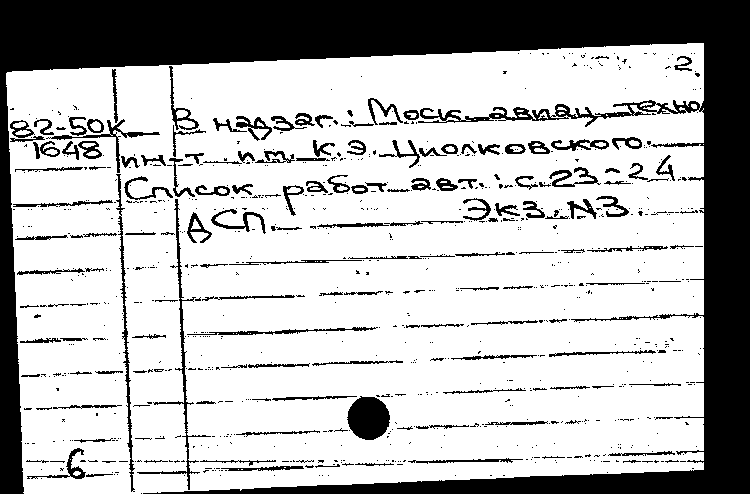 2.
82-50К В надзаг.: Моск. авиац. техно
1648 ин-т им. К.Э. Циолковского.
Список работ авт.: с.23-24
ДСП. Экз. N3.
6